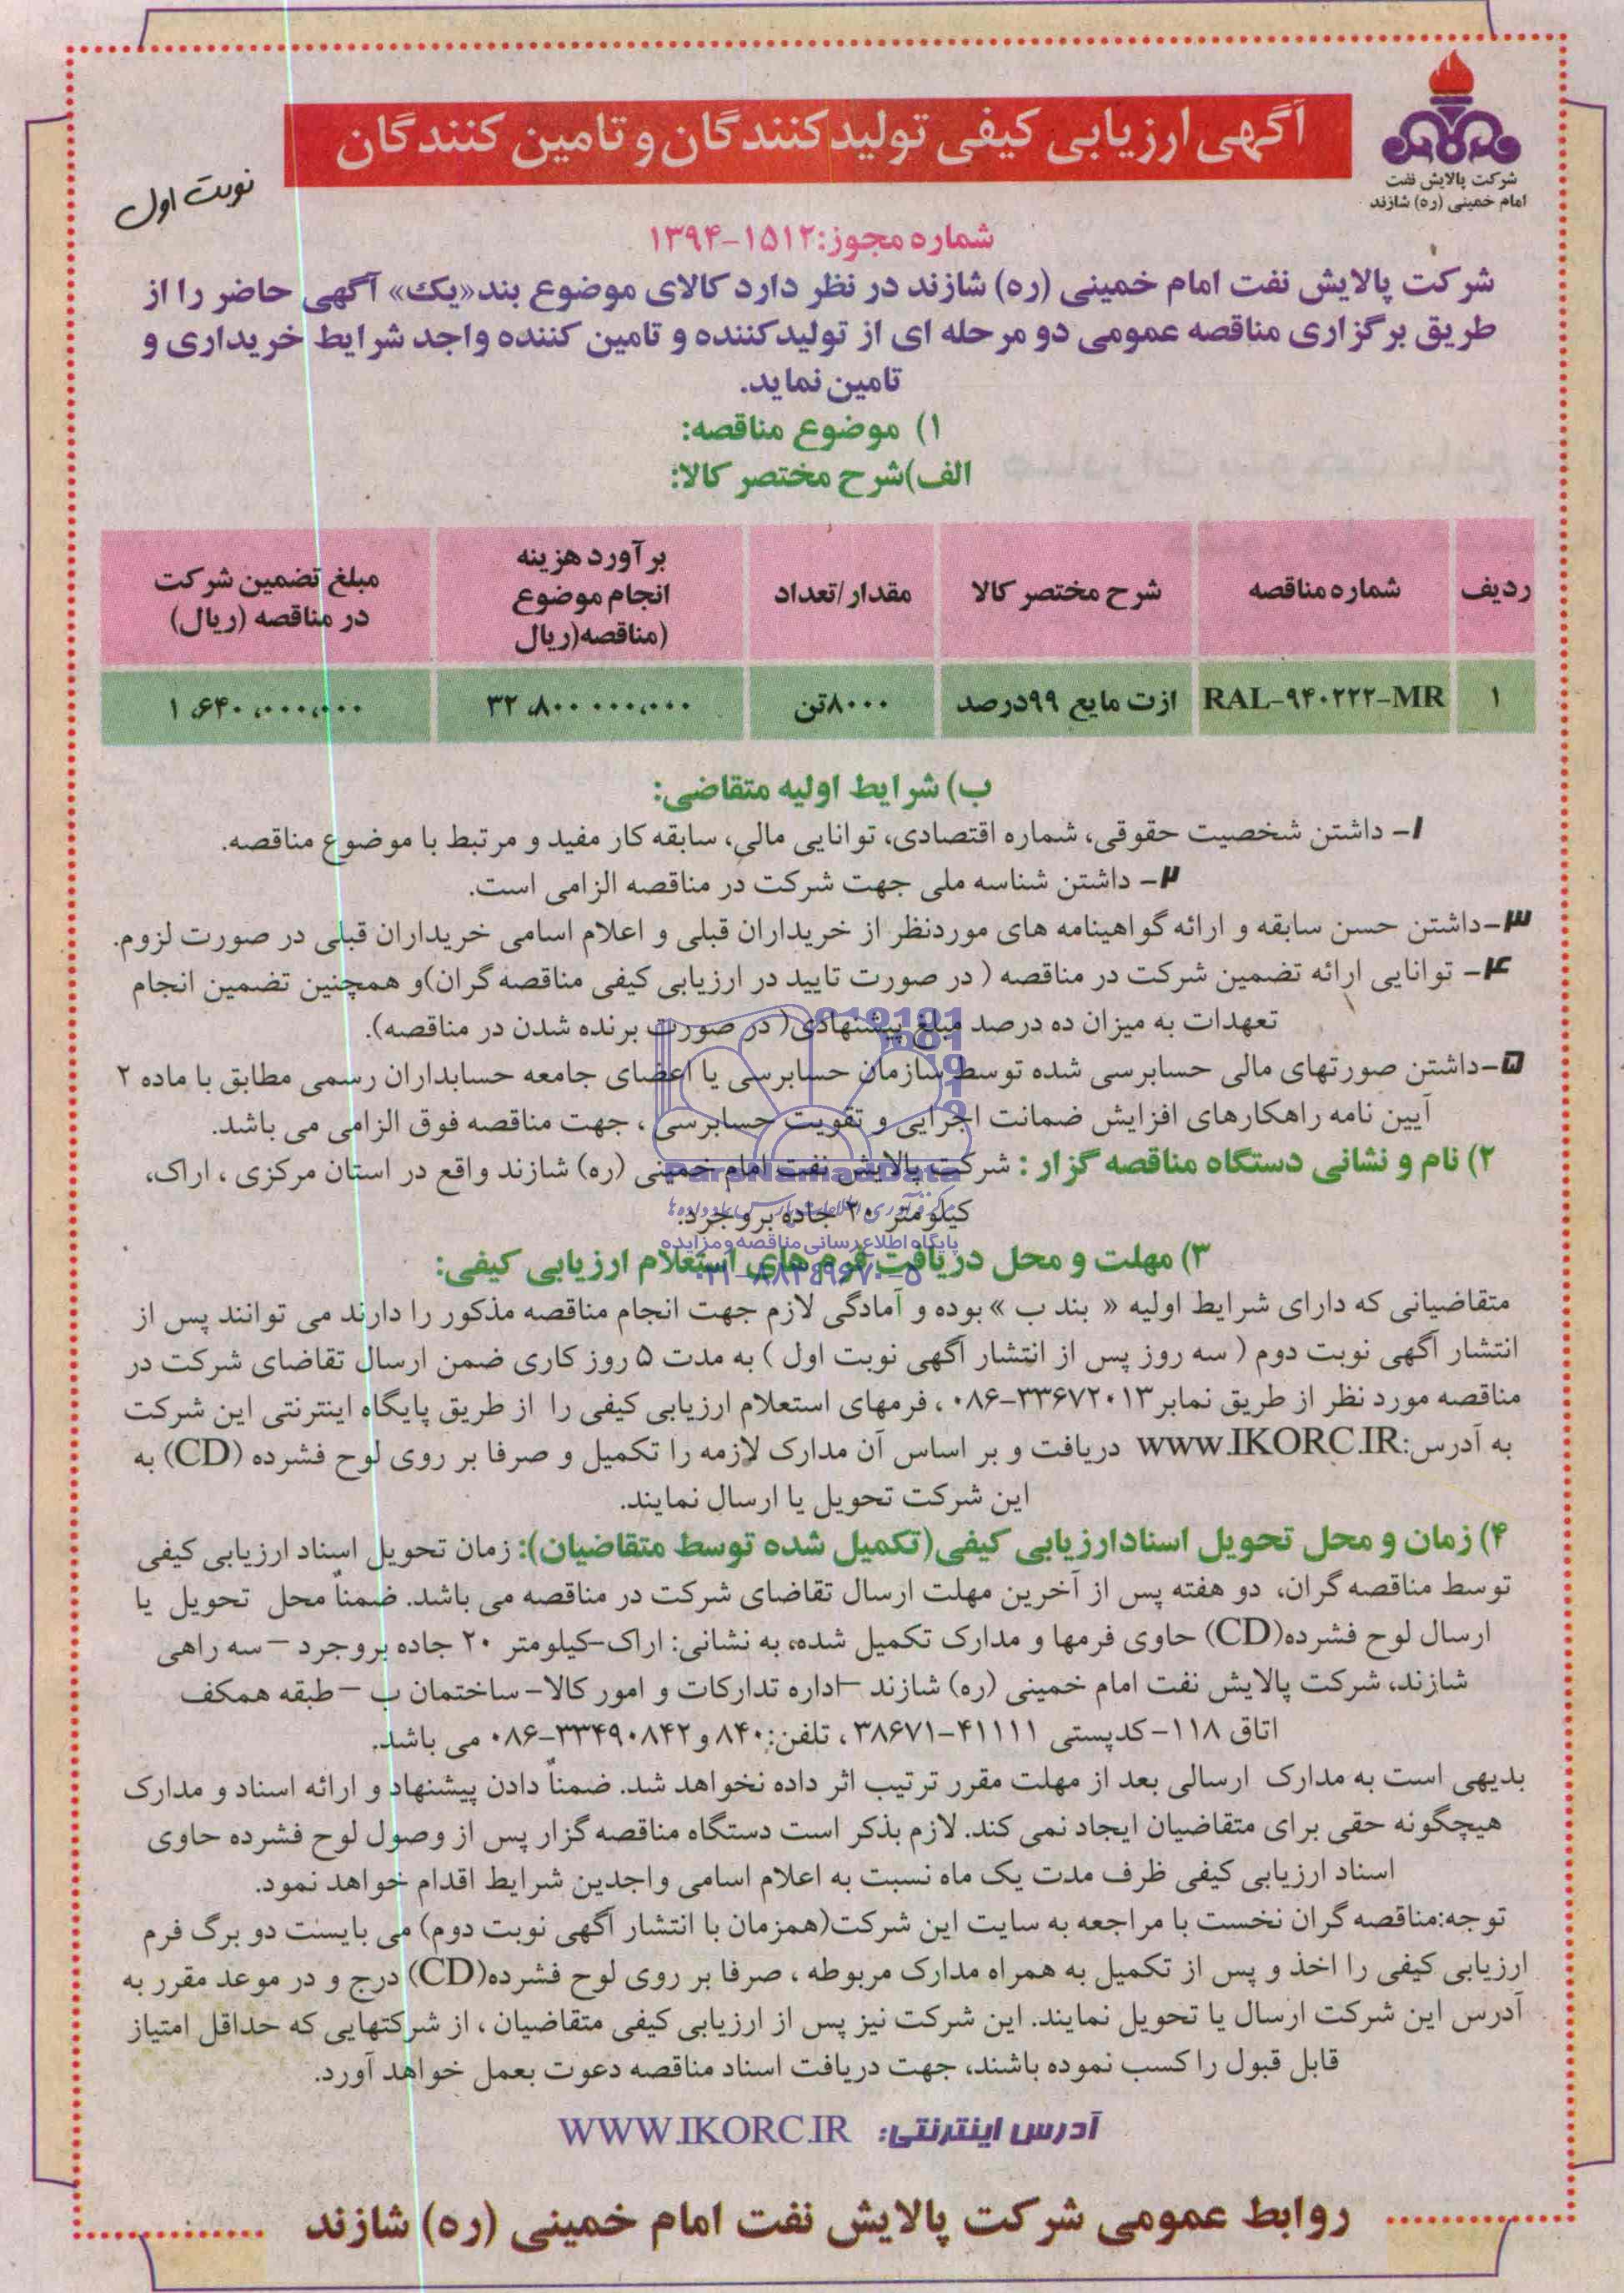 شرکت پالایش نفت
امام خمینی (ره) شازند
آگهی ارزیابی کیفی تولیدکنندگان و تامین کنندگان
نوبت اول
شماره مجوز:۱۵۱۲-۱۳۹۴
شرکت پالایش نفت امام خمینی (ره) شازند در نظر دارد کالای موضوع بند«یک» آگهی حاضر را از
طریق برگزاری مناقصه عمومی دو مرحله ای از تولیدکننده و تامین کننده واجد شرایط خریداری و
تامین نماید.
۱) موضوع مناقصه:
الف)شرح مختصر کالا:
ردیف
شماره مناقصه
شرح مختصر کالا
مقدار/تعداد
برآورد هزینه
انجام موضوع
(مناقصه(ریال
مبلغ تضمین شرکت
در مناقصه (ریال)
۱
RAL-۹۴۰۲۲۲-MR
ازت مایع ۹۹درصد
۸۰۰۰تن
۳۲،۸۰۰ ۰۰۰،۰۰۰
۱،۶۴۰،۰۰۰،۰۰۰
ب) شرایط اولیه متقاضی:
۱- داشتن شخصیت حقوقی، شماره اقتصادی، توانایی مالی، سابقه کار مفید و مرتبط با موضوع مناقصه.
۲- داشتن شناسه ملی جهت شرکت در مناقصه الزامی است.
۳-داشتن حسن سابقه و ارائه گواهینامه های موردنظر از خریداران قبلی و اعلام اسامی خریداران قبلی در صورت لزوم.
۴- توانایی ارائه تضمین شرکت در مناقصه ( در صورت تایید در ارزیابی کیفی مناقصه گران)و همچنین تضمین انجام
تعهدات به میزان ده درصد مبلغ پیشنهادی( در صورت برنده شدن در مناقصه).
۵-داشتن صورتهای مالی حسابرسی شده توسط سازمان حسابرسی یا اعضای جامعه حسابداران رسمی مطابق با ماده ۲
آیین نامه راهکارهای افزایش ضمانت اجرایی و تقویت حسابرسی ، جهت مناقصه فوق الزامی می باشد.
۲) نام و نشانی دستگاه مناقصه گزار : شرکت پالایش نفت امام خمینی (ره) شازند واقع در استان مرکزی ، اراک،
کیلومتر ۲۰ جاده بروجرد.
ParsNamadData
پایگاه اطلاع رسانی مناقصه و مزایده
۰۲۱-۸۸۳۴۹۶۷۰-۵
۳) مهلت و محل دریافت فرم های استعلام ارزیابی کیفی:
متقاضیانی که دارای شرایط اولیه « بند ب »بوده و آمادگی لازم جهت انجام مناقصه مذکور را دارند می توانند پس از
انتشار آگهی نوبت دوم ( سه روز پس از انتشار آگهی نوبت اول ) به مدت ۵ روز کاری ضمن ارسال تقاضای شرکت در
مناقصه مورد نظر از طریق نمابر ۳۳۶۷۲۰۱۳-۰۸۶ ، فرمهای استعلام ارزیابی کیفی را از طریق پایگاه اینترنتی این شرکت
به آدرس:WWW.IKORC.IR دریافت و بر اساس آن مدارک لازمه را تکمیل و صرفا بر روی لوح فشرده (CD) به
این شرکت تحویل یا ارسال نمایند.
۴) زمان و محل تحویل اسنادارزیابی کیفی(تکمیل شده توسط متقاضیان): زمان تحویل اسناد ارزیابی کیفی
توسط مناقصه گران، دو هفته پس از آخرین مهلت ارسال تقاضای شرکت در مناقصه می باشد. ضمناً محل تحویل یا
ارسال لوح فشرده(CD) حاوی فرمها و مدارک تکمیل شده، به نشانی: اراک-کیلومتر ۲۰ جاده بروجرد - سه راهی
شازند، شرکت پالایش نفت امام خمینی (ره) شازند -اداره تدارکات و امور کالا- ساختمان ب - طبقه همکف
اتاق ۱۱۸- کدپستی ۴۱۱۱۱-۳۸۶۷۱ ، تلفن: ۸۴۰ و ۳۳۴۹۰۸۴۲-۰۸۶ می باشد.
بدیهی است به مدارک ارسالی بعد از مهلت مقرر ترتیب اثر داده نخواهد شد. ضمناً دادن پیشنهاد و ارائه اسناد و مدارک
هیچگونه حقی برای متقاضیان ایجاد نمی کند. لازم بذکر است دستگاه مناقصه گزار پس از وصول لوح فشرده حاوی
اسناد ارزیابی کیفی ظرف مدت یک ماه نسبت به اعلام اسامی واجدین شرایط اقدام خواهد نمود.
توجه:مناقصه گران نخست با مراجعه به سایت این شرکت(همزمان با انتشار آگهی نوبت دوم) می بایست دو برگ فرم
ارزیابی کیفی را اخذ و پس از تکمیل به همراه مدارک مربوطه ، صرفا بر روی لوح فشرده(CD) درج و در موعد مقرر به
آدرس این شرکت ارسال یا تحویل نمایند. این شرکت نیز پس از ارزیابی کیفی متقاضیان ، از شرکتهایی که حداقل امتیاز
قابل قبول را کسب نموده باشند، جهت دریافت اسناد مناقصه دعوت بعمل خواهد آورد.
آدرس اینترنتی: WWW.IKORC.IR
روابط عمومی شرکت پالایش نفت امام خمینی (ره) شازند